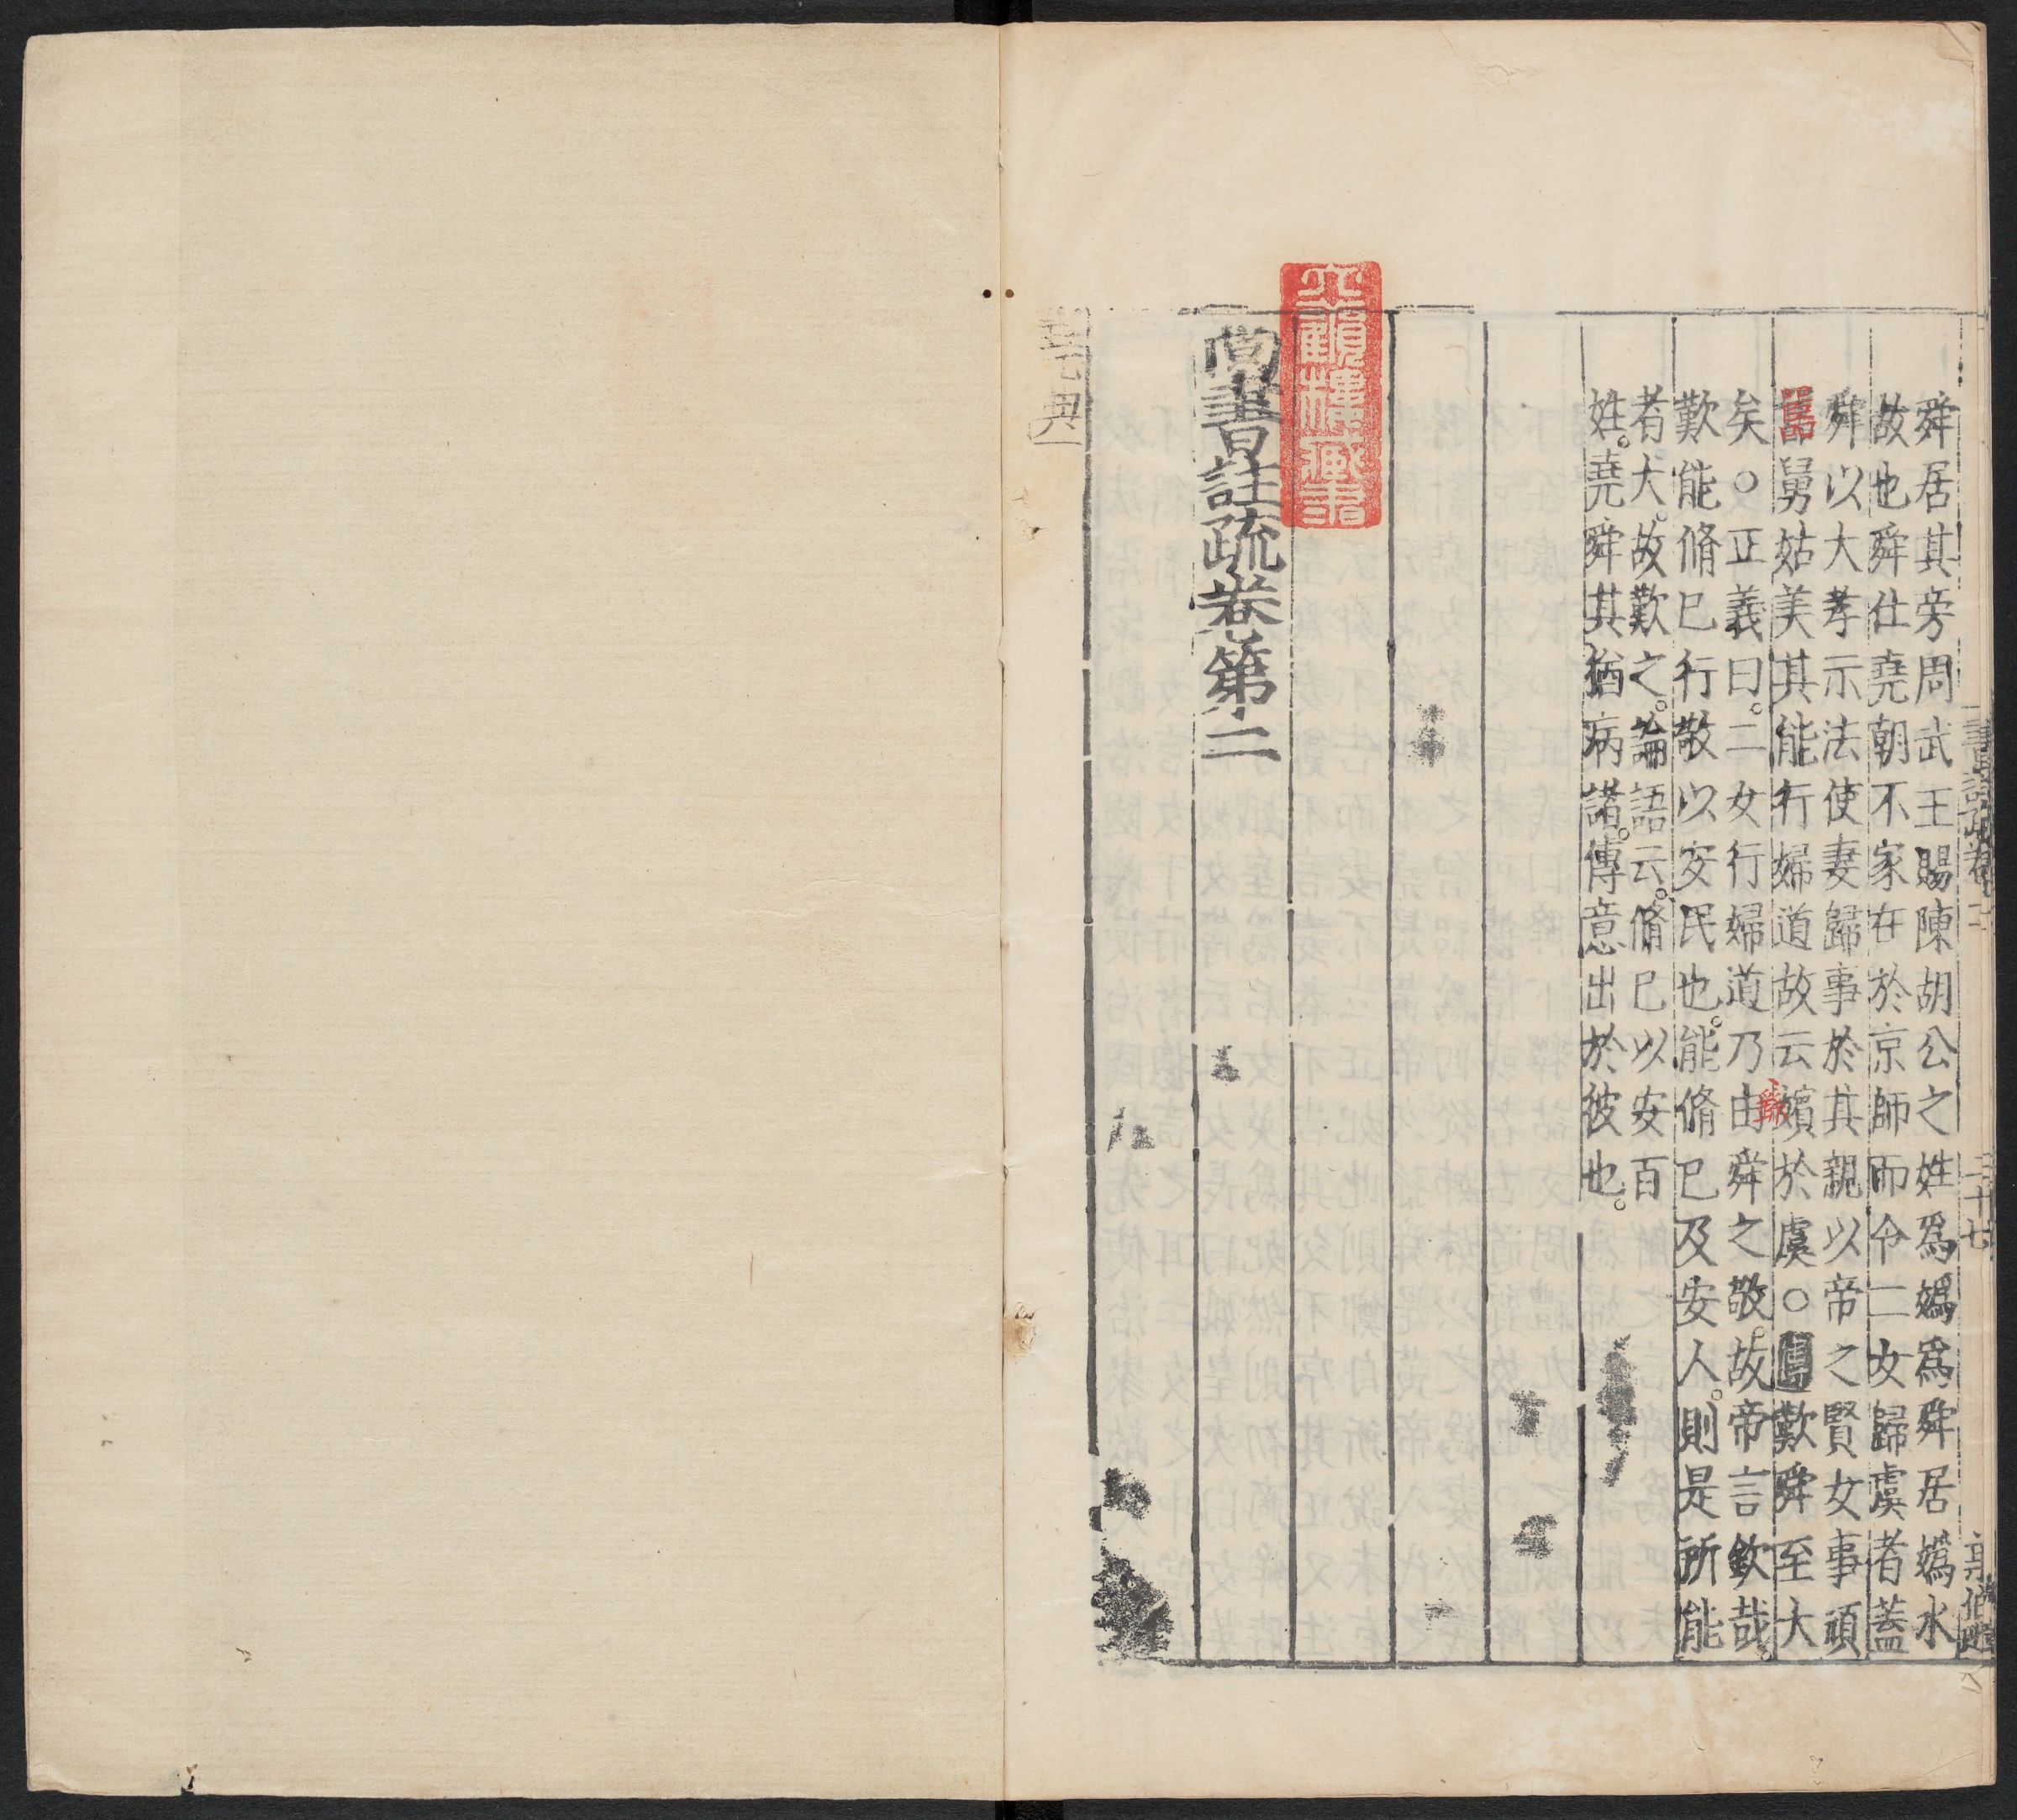 舜居其旁周武王賜陳胡公之姓爲嬀爲舜居嬀水
故也舜仕堯朝不家在於京師而令二女歸虞者蓋
舜以大孝示法使妻歸事於其親以帝之賢女事頑
嚚舅姑美其能行婦道故云嬪於虞○歎舜至大
矣○正義曰二女行婦道乃由舜之敬故帝言欽哉
歎能脩已行敬以安民也能脩已及安人則是所能
者大故歎之論語云脩已以安百
姓堯舜其猶病諸傳意出於彼也
尚書註疏卷第二
堯典
書註疏卷二
二十七